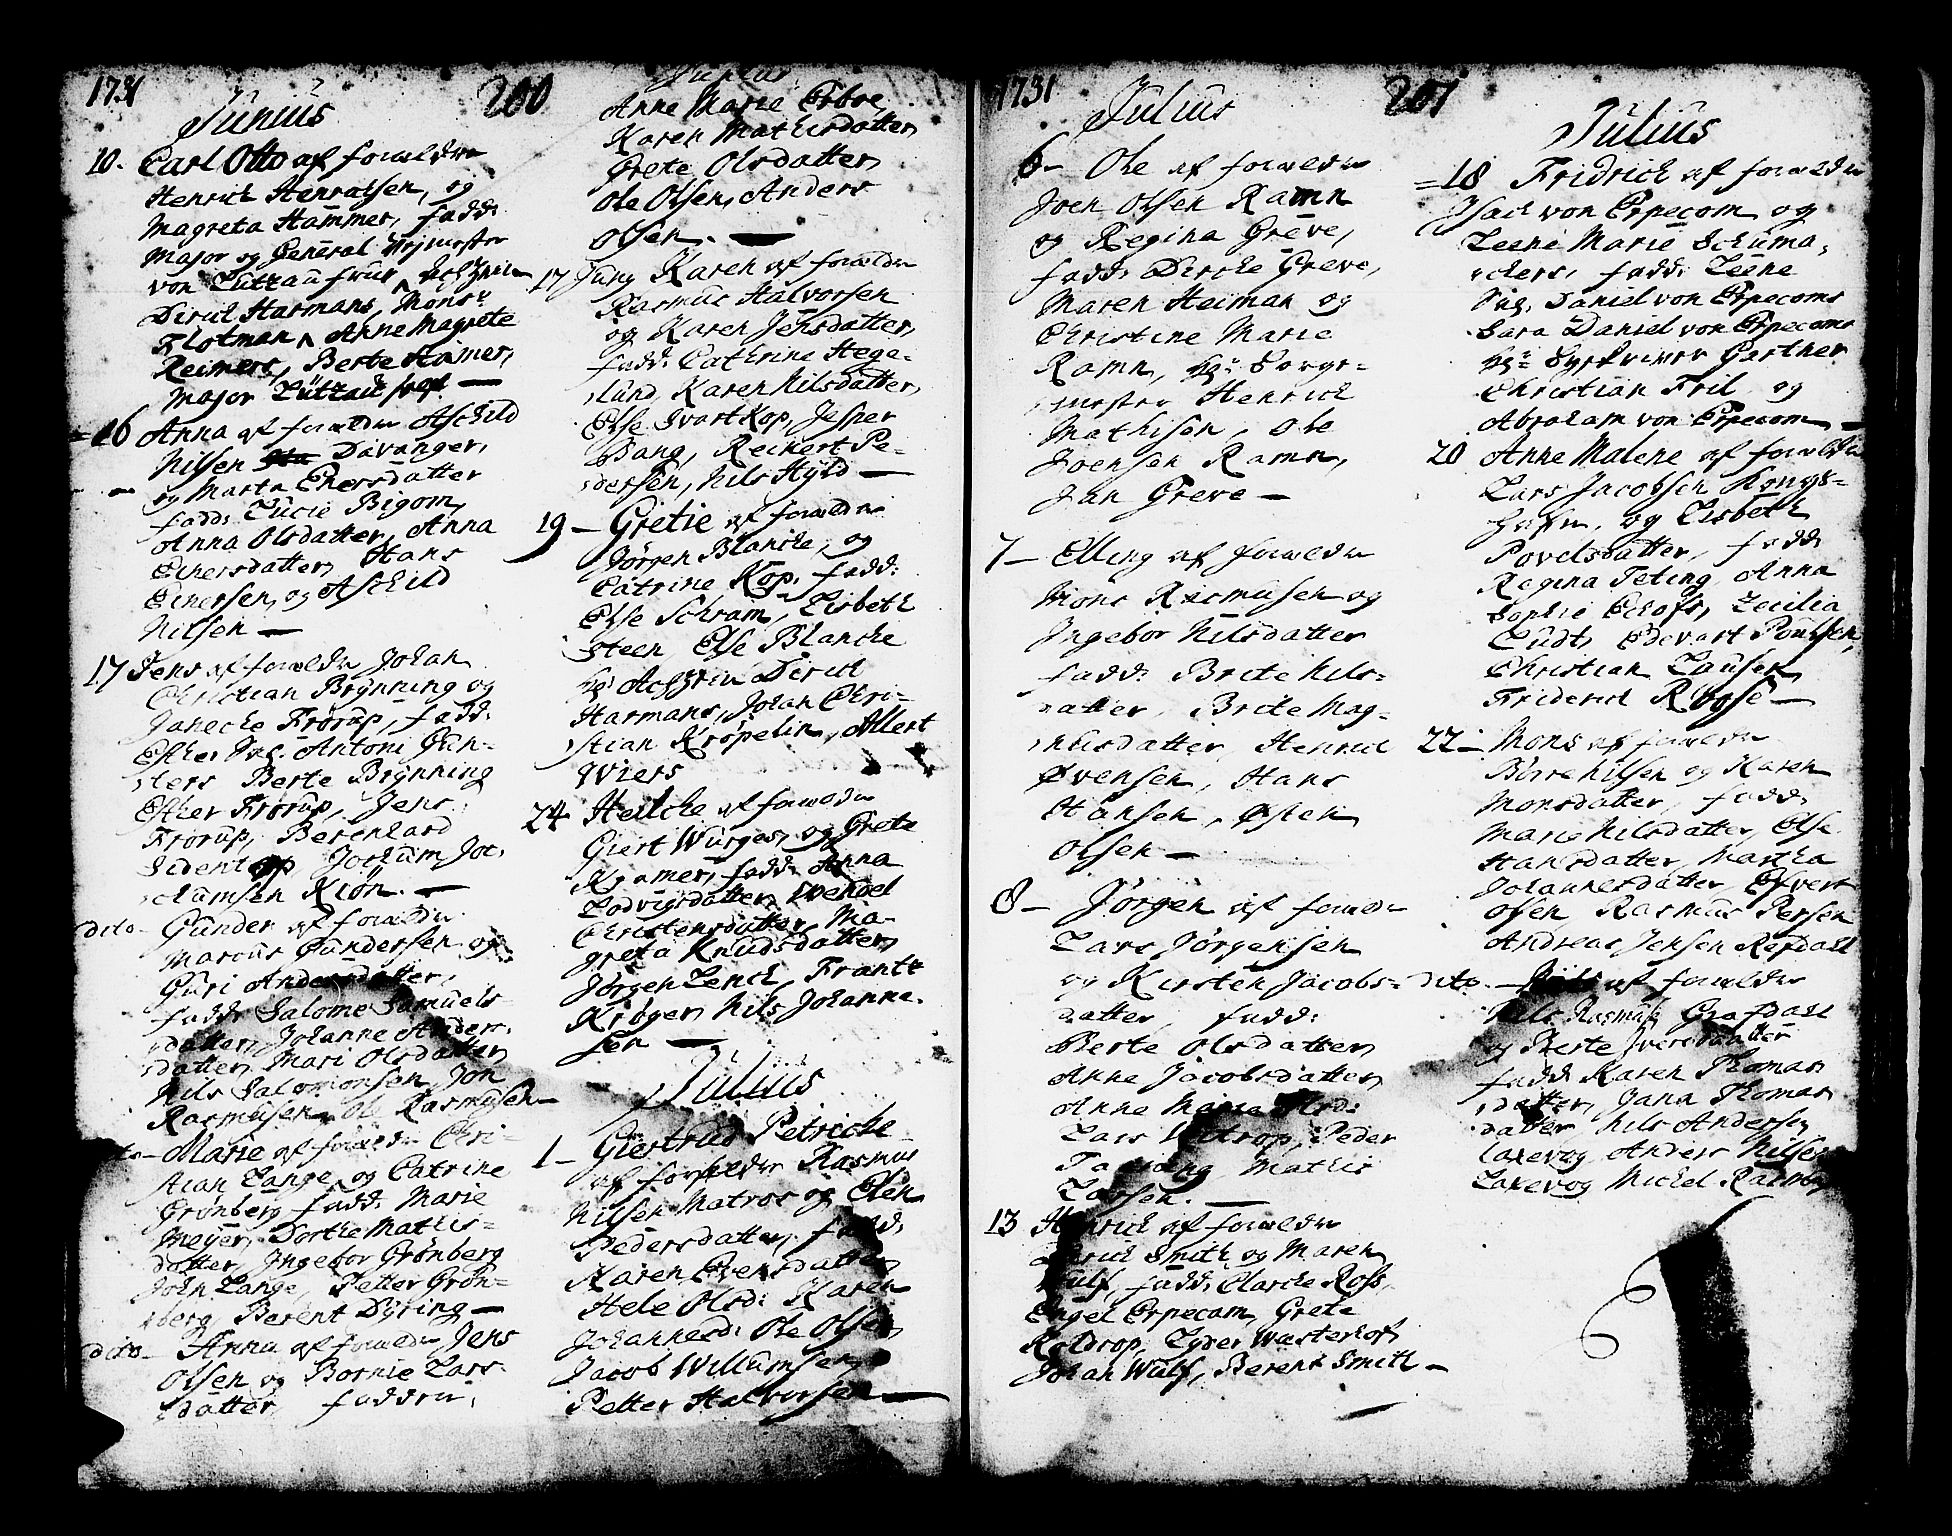 1731
200
Junius
10. Carl Otto af forældre
Henrich Henrichsen, og
Magreta Hammer, fadd:
Major og General
von Lützau
Dirich Harmans, Mons:
Flotman, Anne Magrete
Reimers, Berte Hamer,
Major Lützau
16 Anna af forældre Aschild
Nilsen Davanger,
og Marta Enersdatter
fadd: Lucie Bigom,
Anna Olsdatter, Anna
Enersdatter, Hans
Enersen, og Aschild
Nilsen —
17 Jens af forældre Johan
Christian Brÿnning og
Janecke Frorup, fadd:
Esther Antoni Gün-
ters Berte Brÿnning
Esther Frorup, Jens
Frorup, Berenhard
Sidentop, Jochum Joc-
chumsen Kiön. —
dito- Gunder af forældre
Marcus Gundersen og
Guri Andersdatter,
fadd: Salome Samuels-
datter, Johanne Anders-
datter, Mari Olsdatter
Nils Salomonsen, Jon
Rasmusen, Ole Rasmusen —
Marie af forældre Chri-
stian Lange, og Catrine
Grönberg fadd: Marie
Meÿer, Dorthe Mathis-
datter, Ingebor Grønberg
John Lange, Petter Grön-
berg, Berent Dÿring —
dito- Anna af forældre Jens
Olsen og Bornie Lars-
datter, faddre,
Junius
Anne Marie
Karen Mathisdatter,
Grete Olsdatter,
Ole Olsen, Anders
Olsen. —
17 Karen af forældre
Rasmus Halvorsen
og Karen Jensdatter,
fadd: Cathrine Hege-
lund, Karen Nilsdatter,
Else Svartkop, Jesper
Bang, Reickert Pe-
dersen, Nils Hÿld —
19 — Gretie af forældre
Jørgen Blancke, og
Catrine Kop, fadd:
Else Schram, Lisbeth
Steen, Else Blancke
Dirich
Harmans, Johan Chri-
stian Kröpelin, Allert
Wiers
24 Heilche af forældre
Giert Wurges, og Grete
Kramer, fadd: Anna
Lodvigsdatter, Wendel
Christensdatter, Ma-
greta Knudsdatter,
Jørgen Lenck, Frantz
Krøger, Nils Johanne-
sen —
Julius
1 — Giertrud Petriche
af forældre Rasmus
Nilsen Matros og Elen
Pedersdatter, fadd:
Karen Evensdatter
Hele Olsd: Karen
Johannesd: Ole Olsen,
Jacob Willumsen,
Petter Halvorsen —
1731
201
Julius
6 — Ole af forældre
Joen Olsen Ramn
og Regina Greve,
fadd: Dirche Greve,
Maren Heiman og
Christine Marie
Ramn, Borge-
mester Henrich
Mathisen, Ole
Joensen Ramn,
Jan Greve —
7 — Elling af forældre
Mons Rasmusen og
Ingebor Nilsdatter
fadd: Brite Nils-
datter, Brite Mag-
nusdatter, Henrich
Øvensen, Hans
Hansen, Østen
Olsen —
8 — Jørgen af forældre
Lars Jørgensen
og Kirsten Jacobs-
datter, fadd:
Berte Olsdatter,
Anne Jacobsdatter,
Anne Maria Olsd:
Lars Peder
Mathis
Larsen. —
13 Henrich af forældre
Smith og Maren
Wulf, fadd: Clarche Ross,
Engel Erpecom, Grete
Koldrop, Lÿder Wasterhof,
Johan Wulf, Berent Smith —
Julius
18 Fridrich af forældre
Isach von Erpecom og
Leene Marie Schuma-
ckers, fadd: Leene
Daniel von Erpecoms
Sara Daniel von Erpecoms
Garther
Christian Fril, og
Abraham von Erpecom —
20 Anne Malene af forældre
Lars Jacobsen Kongs-
hafn, og Lisbeth
Povelsdatter, fadd:
Regina Teting, Anna
Sophie Echofs, Zecilia
Ludt, Edevart Poulsen,
Christian Lausen,
Friderich Rÿgse —
22 — Mons af forældre
Børre Nilsen og Karen
Monsdatter, fadd:
Marie Nilsdatter, Else
Hansdatter, Martha
Johannesdatter, Efvert
Olsen Rasmus Persen
Andreas Jensen Refdahl
dito. — af forældre
Nils Rasmus: Grafdahl
og Berte Iversdatter
fadd: Karen Thomas-
datter, Jana Thomas-
datter, Nils Andersen
Laxevog, Anders Nilsen
Laxevog Michel